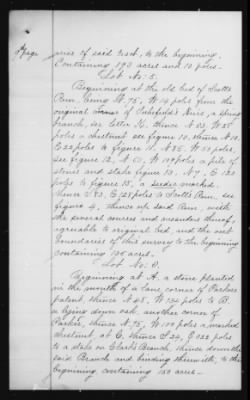 of said
to the beginning.
Containing 193 acres and 10 poles.
Lot No. 5.
Beginning at the old bed of Scotts
Run, being N. 75, W 14 poles from the
original
branch, see letter
poles a chestnut see figure 10, thence N 10
E 22 poles to figure 11. N 25, W 53 poles,
see figure 12, N 60, W 104 poles a pile of
stones and stake figure 13. N 7, E 120
poles to figure 15, a marked.
thence S 83, E 125 poles to Scotts Run, see
figure 4, thence up said Run, with
the several courses and meanders thereof,
agreeable to original bed, and the out
boundaries of this survey to the beginning
containing 125 acres.
Lot No. 6.
Beginning at A. a stone planted
in the mouth of a lane, corner of Parkers
patent, thence N 48, W 134 poles to B.
a lying down oak another corner of
Parker, thence N, 75, W 100 poles a marked
chestnut, at C. thence S 24, W 222 poles
to a stake on Clark's Branch, thence down the
said Branch and binding therewith, to the
beginning containing 150 acres-